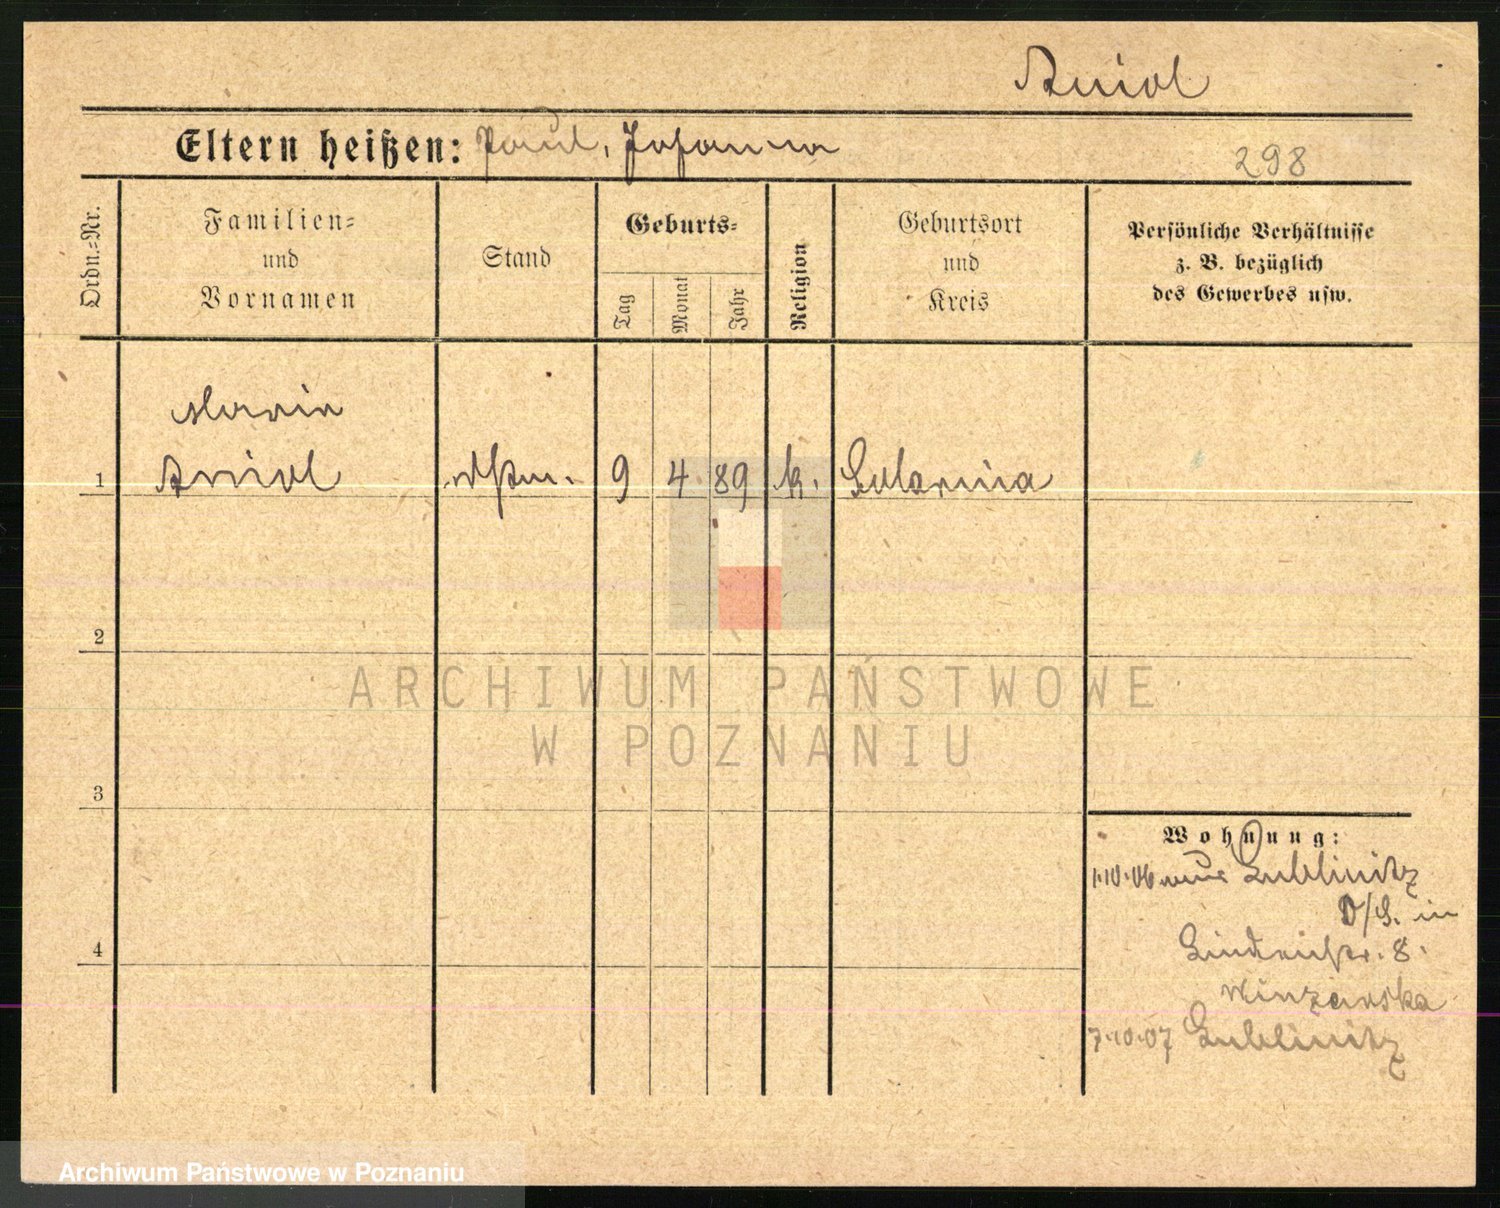 Aniol
Eltern heißen: Paul, Johanna
298
Ordn.-Nr.
Familien-
und
Vornamen
Stand
Geburts-
Tag
Monat
Jahr
Religion
Geburtsort
und
Kreis
Persönliche Verhältnisse
z. B. bezüglich
des Gewerbes usw.
Maria
1 Aniol 9 4. 89 k.
2
3
4
Wohnung:
1.10.06 Lublinitz
O/S. in
Lindenstr. 8.
7.10.07 Lublinitz
ARCHIWUM PAŃSTWOWE
W POZNANIU
Archiwum Państwowe w Poznaniu